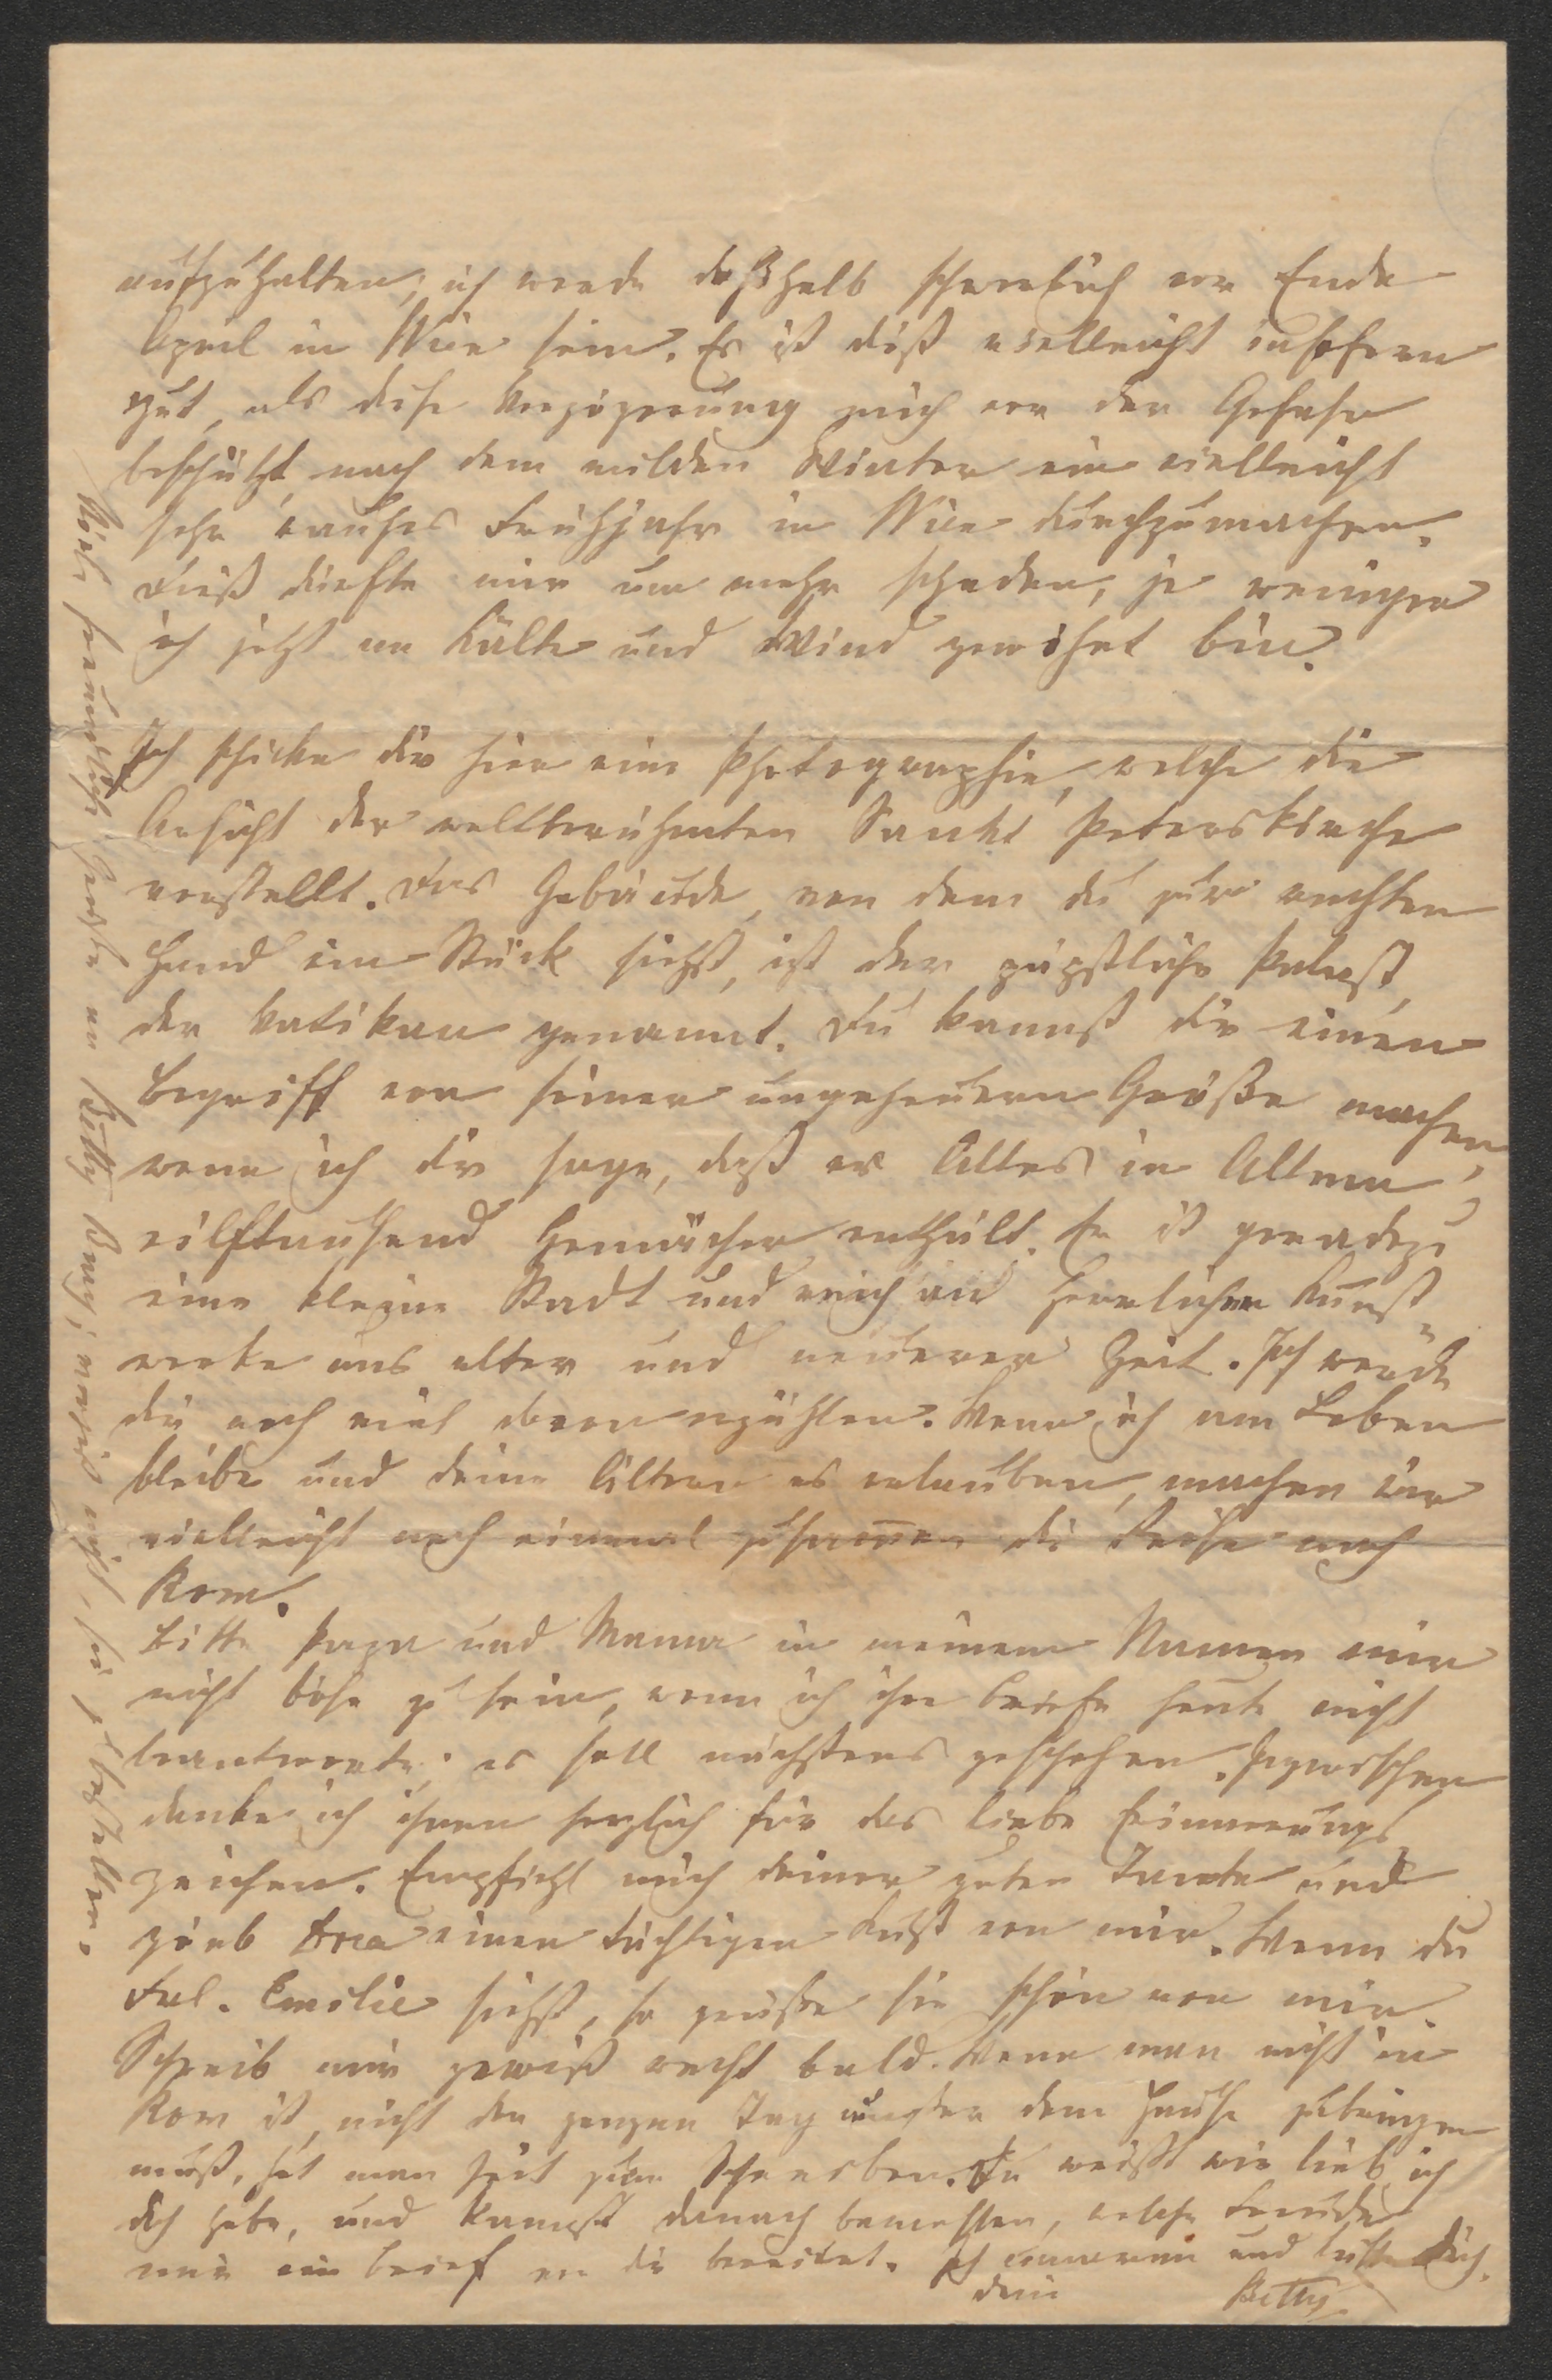 aufzuhalten; ich werde deßhalb schwerlich vor Ende
April in Wien sein. Es ist dieß vielleicht insofern
gut, als diese Verzögerung mich vor der Gefahr
beschützt, nach dem milden Winter ein vielleicht
sehr rauhes Frühjahr in Wien durchzumachen.
Dieß dürfte mir um mehr schaden, je weniger
ich jetzt an Kälte und Wind gewöhnt bin.
Ich schicke dir hier eine Photographie, welche die
Ansicht der weltberühmten Sankt Peterskirche
vorstellt. Das Gebäude, von dem du zur rechten
Hand ein Stück siehst, ist der päpstliche Palast,
der Vatikan genannt. Du kannst dir einen
Begriff von seiner ungeheuern Größe machen,
wenn ich dir sage, daß er Alles in Allem
eilftausend Gemächer enthält. Er ist geradezu
eine kleine Stadt und reich an herrlichen Kunst-
werke aus alter und neuerer Zeit. Ich werde
dir noch viel davon erzählen. Wenn ich am Leben
bleibe und deine Ältern es erlauben, machen wir
vielleicht noch einmal zusammen die Reise nach
Rom.
Bitte Papa und Mama in meinem Namen mir
nicht böse zu sein, wenn ich ihre Briefe heute nicht
beantworte; es soll nächstens geschehen. Inzwischen
danke ich ihnen herzlich für das liebe Erinnerungs
zeichen. Empfiehl mich deiner guten Tante und
gieb einen tüchtigen Kuß von mir. Wenn du
Frl. Emilie siehst, so grüße sie schön von mir.
Schreib mir gewiß recht bald. Wenn man nicht in
Rom ist, nicht den ganzen Tag außer dem Hause zubringen
muß, hat man Zeit zum Schreiben. Du weißt wie lieb ich
dich habe, und kannst danach bemessen, welche Freude
mir ein Brief von dir bereitet. Ich umarme und küsse dich.
dein Betty
Viele freundliche Grüße an Betty; vergiß nicht, sie zu bestellen.